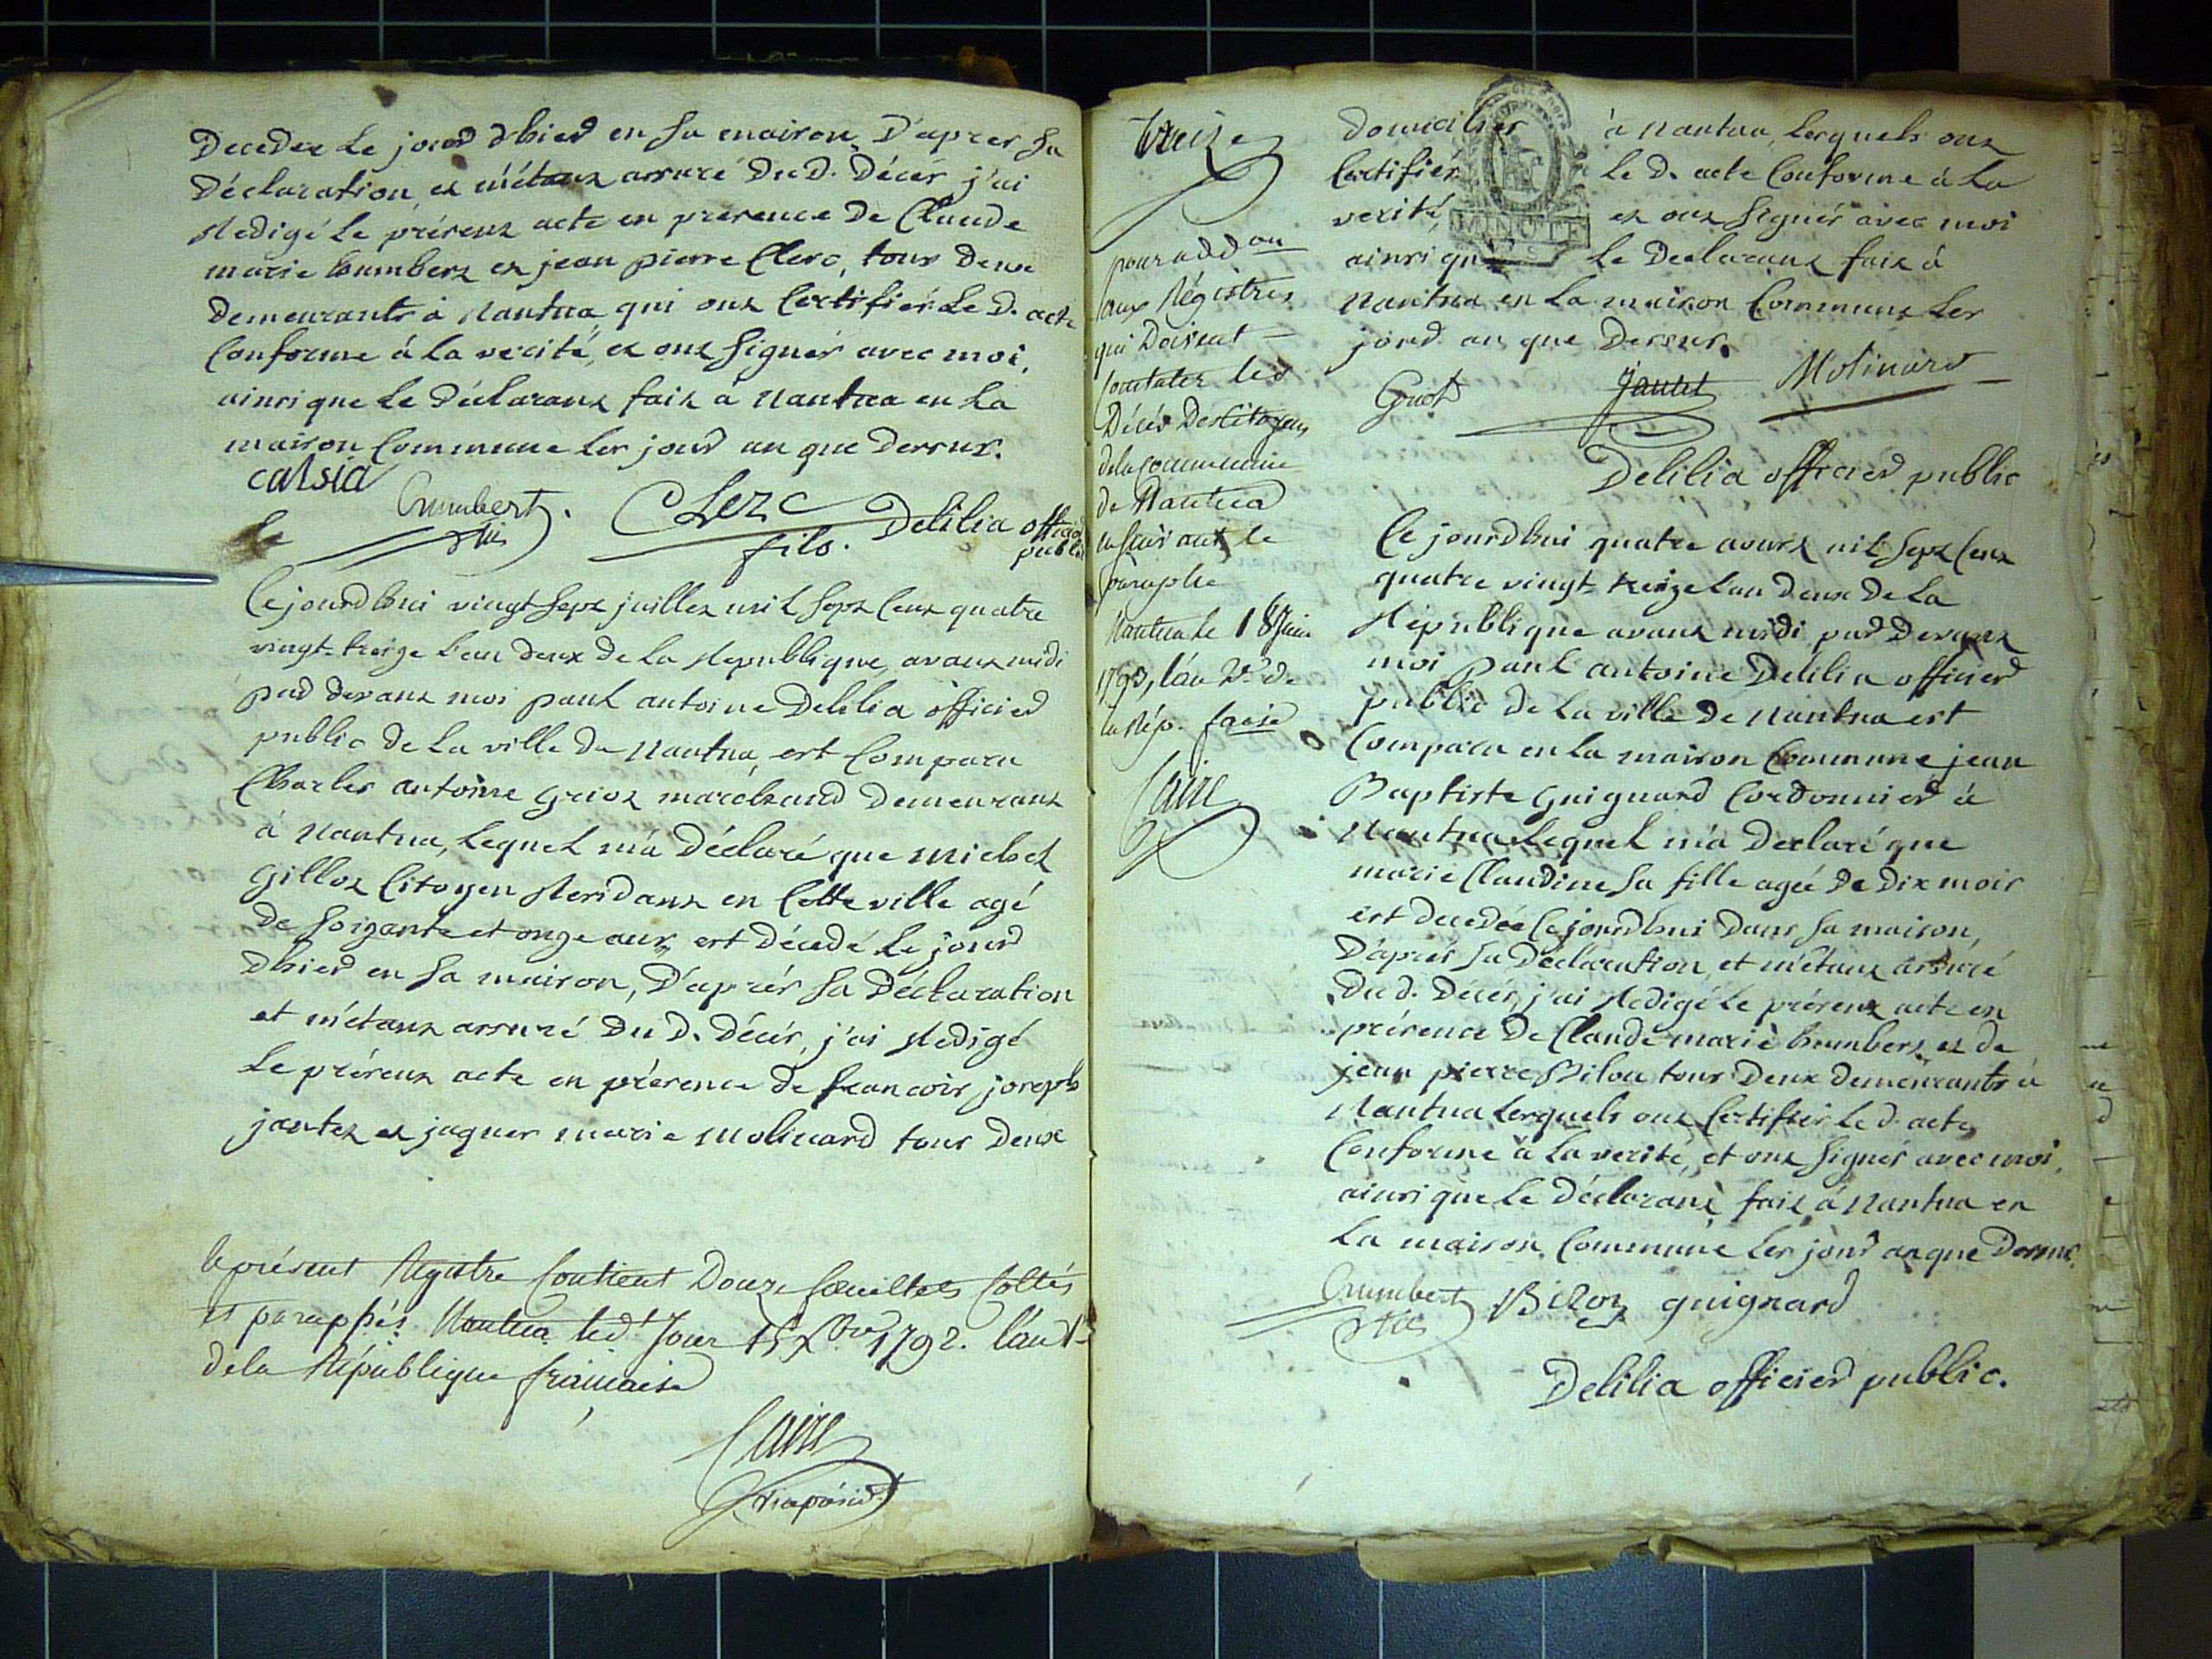 Decedee le jourd'hier en sa maison, D'apres sa
Déclaration, et m'étant assuré du d. Décés j'ai
Redigé le présent acte en présence de Claude
marie humbert et jean pierre Clerc, tous deux
demeurants à Nantua qui ont Certifiés le d. acte
Conforme à la verité, et ont signés avec moi,
ainsi que le Déclarant fait à Nantua en la
maison Commune les jour an que dessus.
catsia
humbert
Clerc
fils.
Delilia officier
public
Ce jourd'hui vingt sept juillet mil sept cent quatre
vingt-treize l'an deux de la Republique, avant midi
par devant moi paul antoine Delilia officier
public de la ville de Nantua, est Comparu
Charles antoine griot marchand demeurant
à Nantua, lequel m'a Déclaré que michel
gillot Citoyen Residant en Cette ville agé
de soizante et onze ans, est décédé le jourd
d'hier en sa maison, D'après sa Déclaration
et m'étant assuré du d. Décés, j'ai Redigé
le présent acte en présence de francois joseph
jantet et jaques marie molinard tous deux
le présent Registre Contient Douze feuillets Cottés
et paraphés. Nantua led.t Jour 15 Xbre 1792. l'an 1er
de la République française
Caire
treize
pour add.on
aux Régistres
qui Doivent
constater les
Décès des Citoyens
de la commune
de Nantua
en suivant le
paraphe
Nantua le 18 Juin
1793, l'an 2e de
la Rép. fse
Caire
Domiciliés à Nantua, lesquels ont
Certifiés le d. acte Conforme à la
verité, et ont signés avec moi
MINUTE
ainsi que le Declarant fait à
Nantua en la maison Commune les
jourd. an que dessus.
Griot
Jantet
Molinard
Delilia officier public
Ce jourd'hui quatre aoust mil sept cent
quatre vingt-treize l'an deux de la
République avant midi par devant
moi paul antoine Delilia officier
public de la ville de Nantua est
Comparu en la maison Commune jean
Baptiste guignard Cordonnier à
Nantua lequel m'a Declaré que
marie Claudine sa fille agée de dix mois
est decedée Ce jourd'hui dans sa maison,
D'après sa Déclaration, et m'étant assuré
du d. Décés, j'ai Redigé le présent acte en
présence de Claude marie humbert et de
jean pierre Bilon tous deux demeurants à
Nantua lesquels ont Certifiés le d. acte
Conforme à la verité, et ont signés avec moi,
ainsi que le Déclarant fait à Nantua en
la maison Commune les jour an que dessus.
humbert
Bilon
guignard
Delilia officier public.